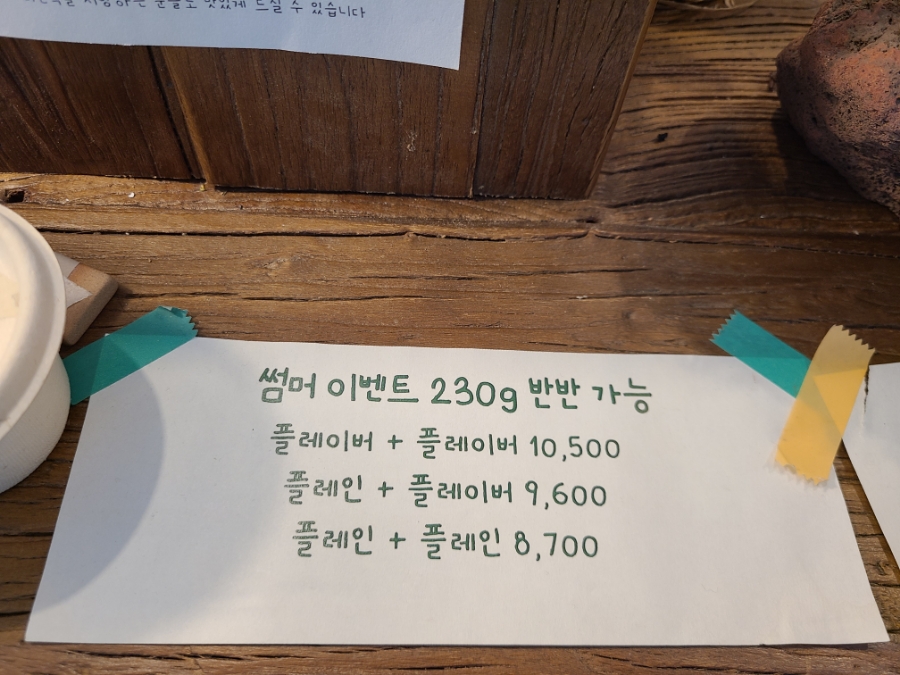 분들도 맛있게 드실 수 있습니다
썸머 이벤트 230g 반반 가능
플레이버 + 플레이버 10,500
플레인 + 플레이버 9,600
플레인 + 플레인 8,700